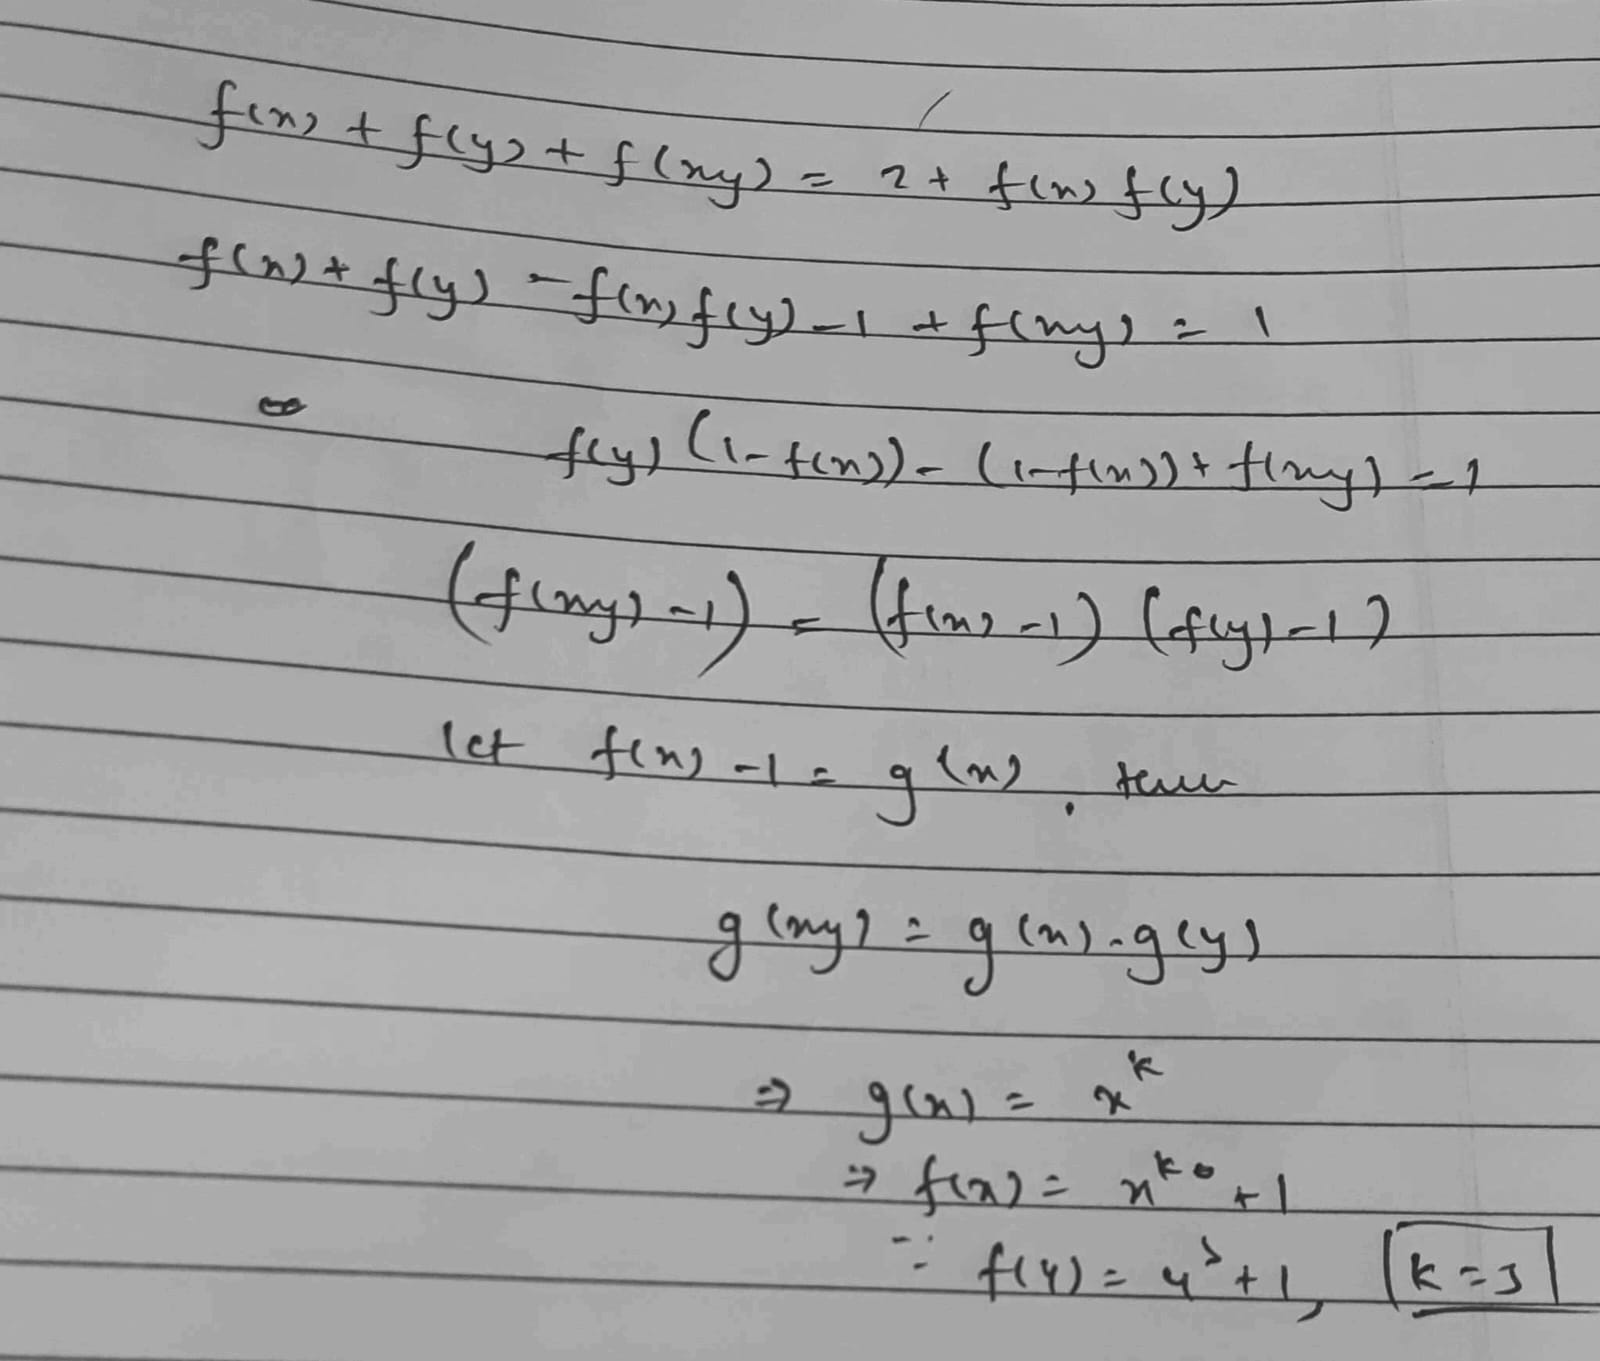 f(x) + f(y) + f(xy) = 2 + f(x) f(y)
f(x) + f(y) - f(x) f(y) - 1 + f(xy) = 1
f(y) (1 - f(x)) - (1 - f(x)) + f(xy) = 1
(f(xy) - 1) = (f(x) - 1) (f(y) - 1)
let f(x) - 1 = g(x),
g(xy) = g(x) . g(y)
⇒ g(x) = x^k
⇒ f(x) = x^k + 1
∵ f(4) = 4^3 + 1, k = 3